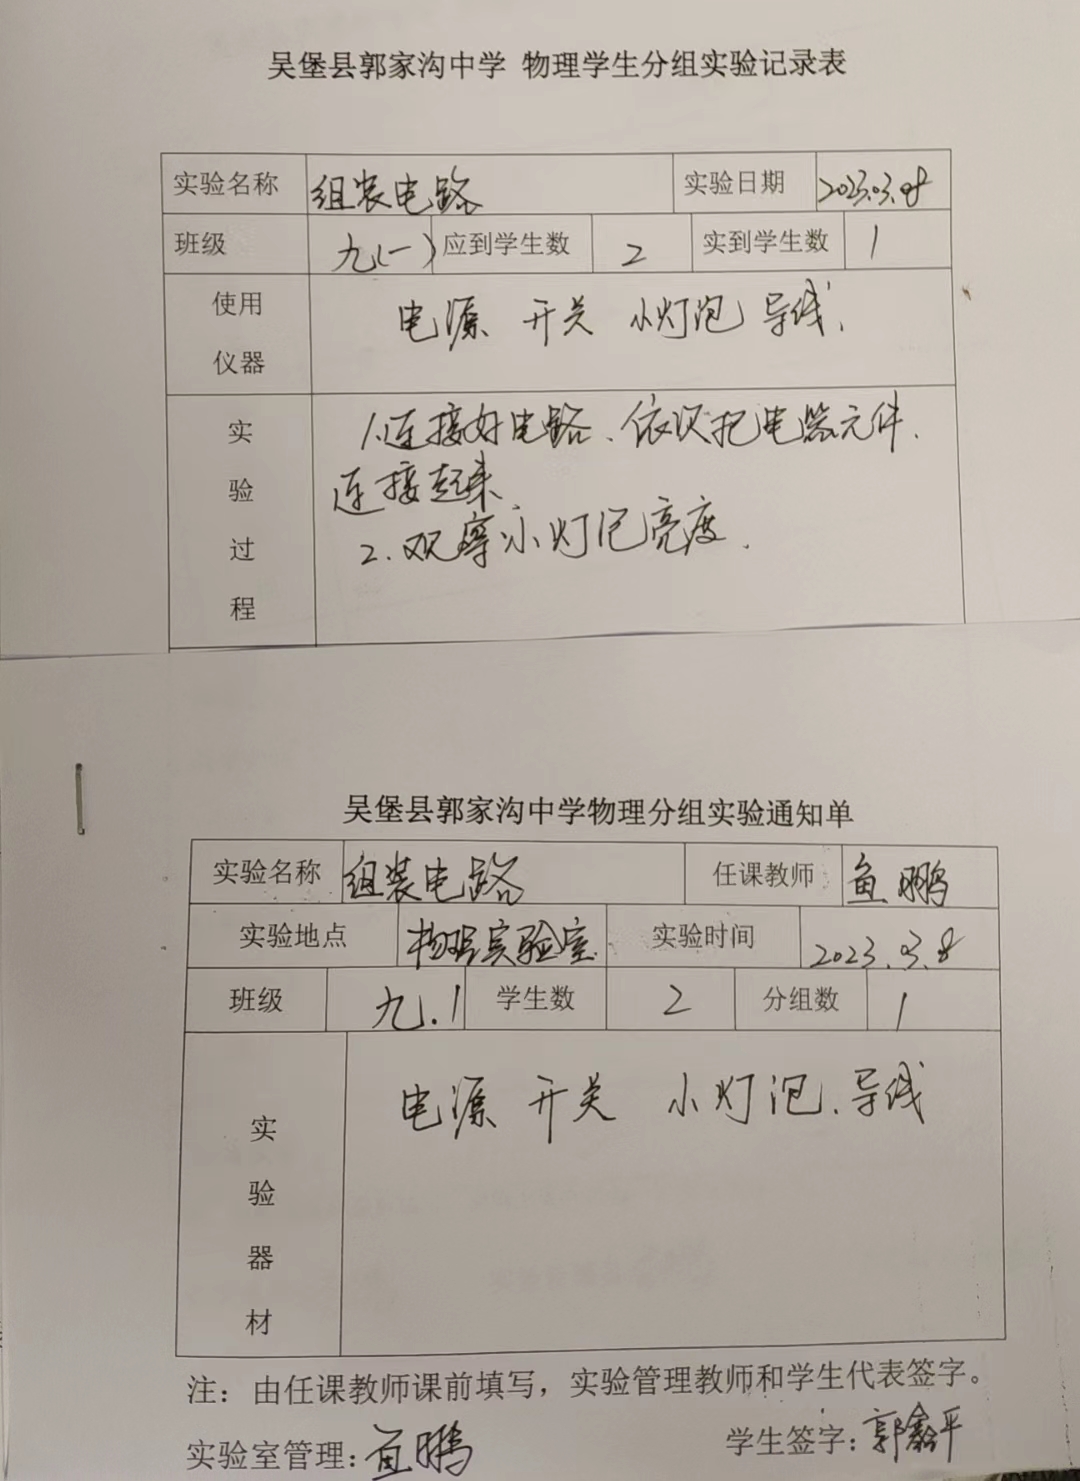 吴堡县郭家沟中学 物理学生分组实验记录表
实验名称 组装电路 实验日期 2023.03.08
班级 九(一) 应到学生数 2 实到学生数 1
使用仪器 电源 开关 小灯泡 导线.
实验过程
1.连接好电路、依次把电器元件.
连接起来
2.观察小灯泡亮度.
吴堡县郭家沟中学物理分组实验通知单
实验名称 组装电路 任课教师 鱼鹏
实验地点 物理实验室 实验时间 2023.03.8
班级 九.1 学生数 2 分组数 1
实验器材 电源 开关 小灯泡.导线
注：由任课教师课前填写，实验管理教师和学生代表签字。
实验室管理:鱼鹏 学生签字:郭鑫平